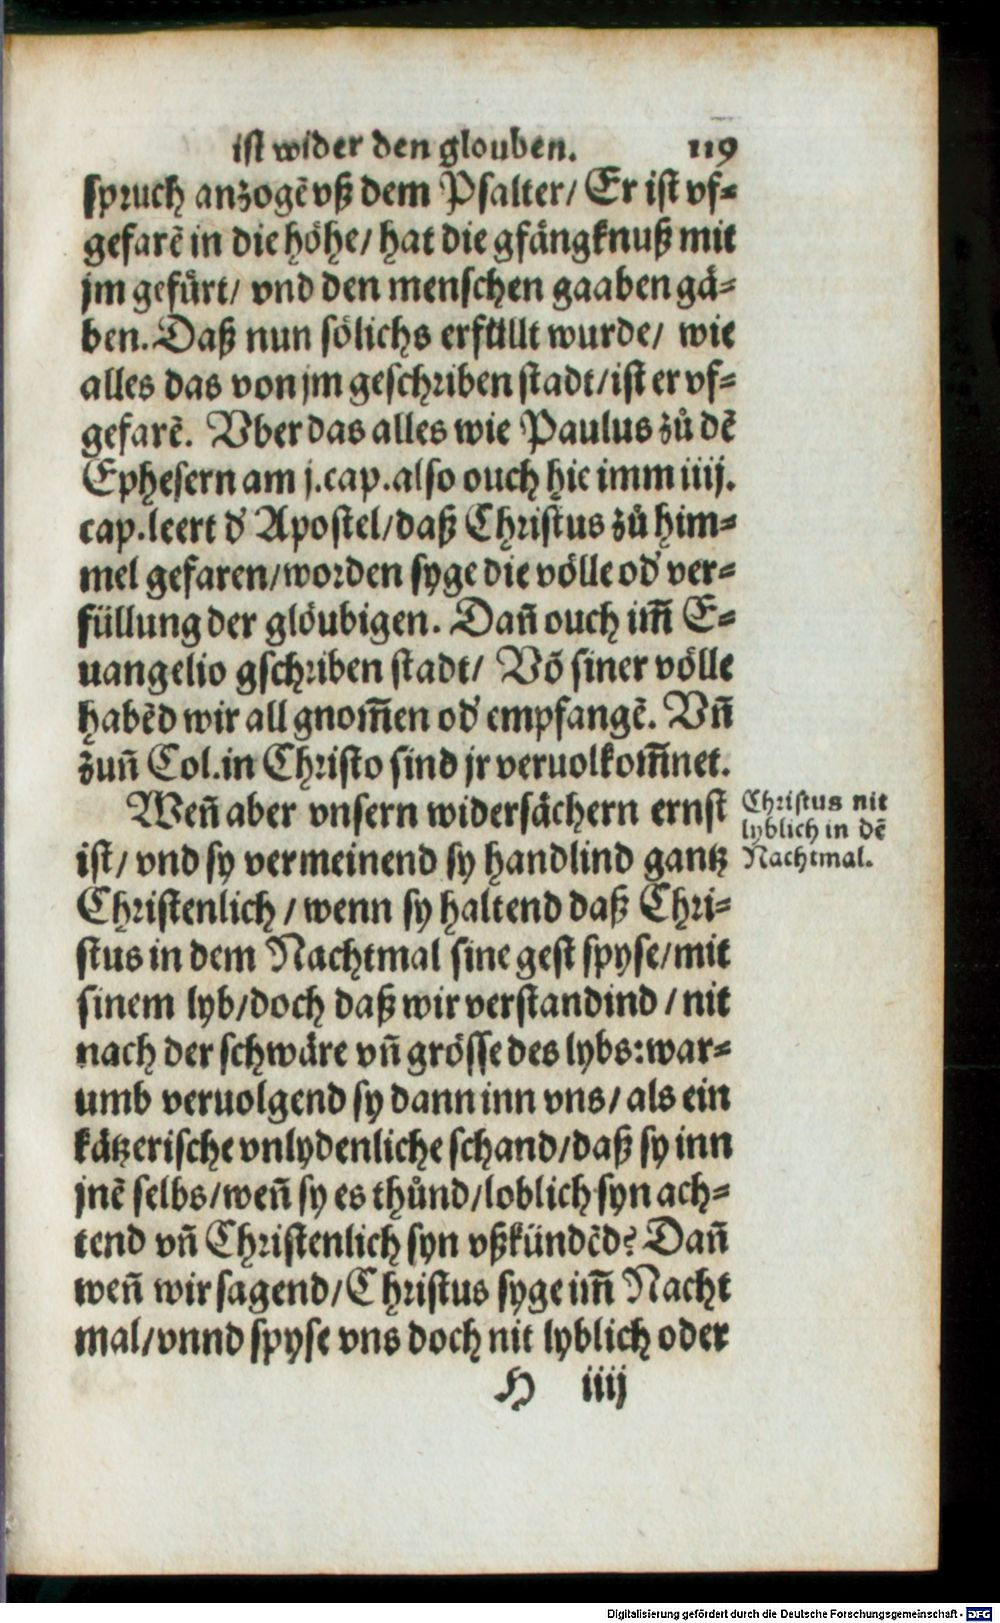 ist wider den glouben. 119
spruch anzogẽ vß dem Psalter/ Er ist vf⸗
gefarẽ in die höhe/ hat die gfängknuß mit
jm gefürt/ vnd den menschen gaaben gä⸗
ben. Daß nun sölichs erfüllt wurde/ wie
alles das von jm geschriben stadt/ ist er vf⸗
gefarẽ. Vber das alles wie Paulus zů dẽ
Ephesern am j. cap. also ouch hie imm iiij.
cap. leert d' Apostel/ daß Christus zů him⸗
mel gefaren/ worden syge die völle od' ver⸗
füllung der glöubigen. Dañ ouch im̃ E⸗
uangelio gschriben stadt/ Võ siner völle
habẽd wir all gnom̃en od' empfangẽ. Vñ
zuñ Col. in Christo sind jr veruolkom̃net.
Weñ aber vnsern widersächern ernst
ist/ vnd sy vermeinend sy handlind gantz
Christenlich / wenn sy haltend daß Chri⸗
stus in dem Nachtmal sine gest spyse/ mit
sinem lyb/ doch daß wir verstandind / nit
nach der schwäre vñ grösse des lybs: war⸗
umb veruolgend sy dann inn vns/ als ein
kätzerische vnlydenliche schand/ daß sy inn
jnẽ selbs/ weñ sy es thůnd/ loblich syn ach⸗
tend vñ Christenlich syn vßkündẽd? Dañ
weñ wir sagend/ Christus syge im̃ Nacht
mal/ vnnd spyse vns doch nit lyblich oder
H iiij
Christus nit
lyblich in dẽ
Nachtmal.
Digitalisierung gefördert durch die Deutsche Forschungsgemeinschaft - DFG